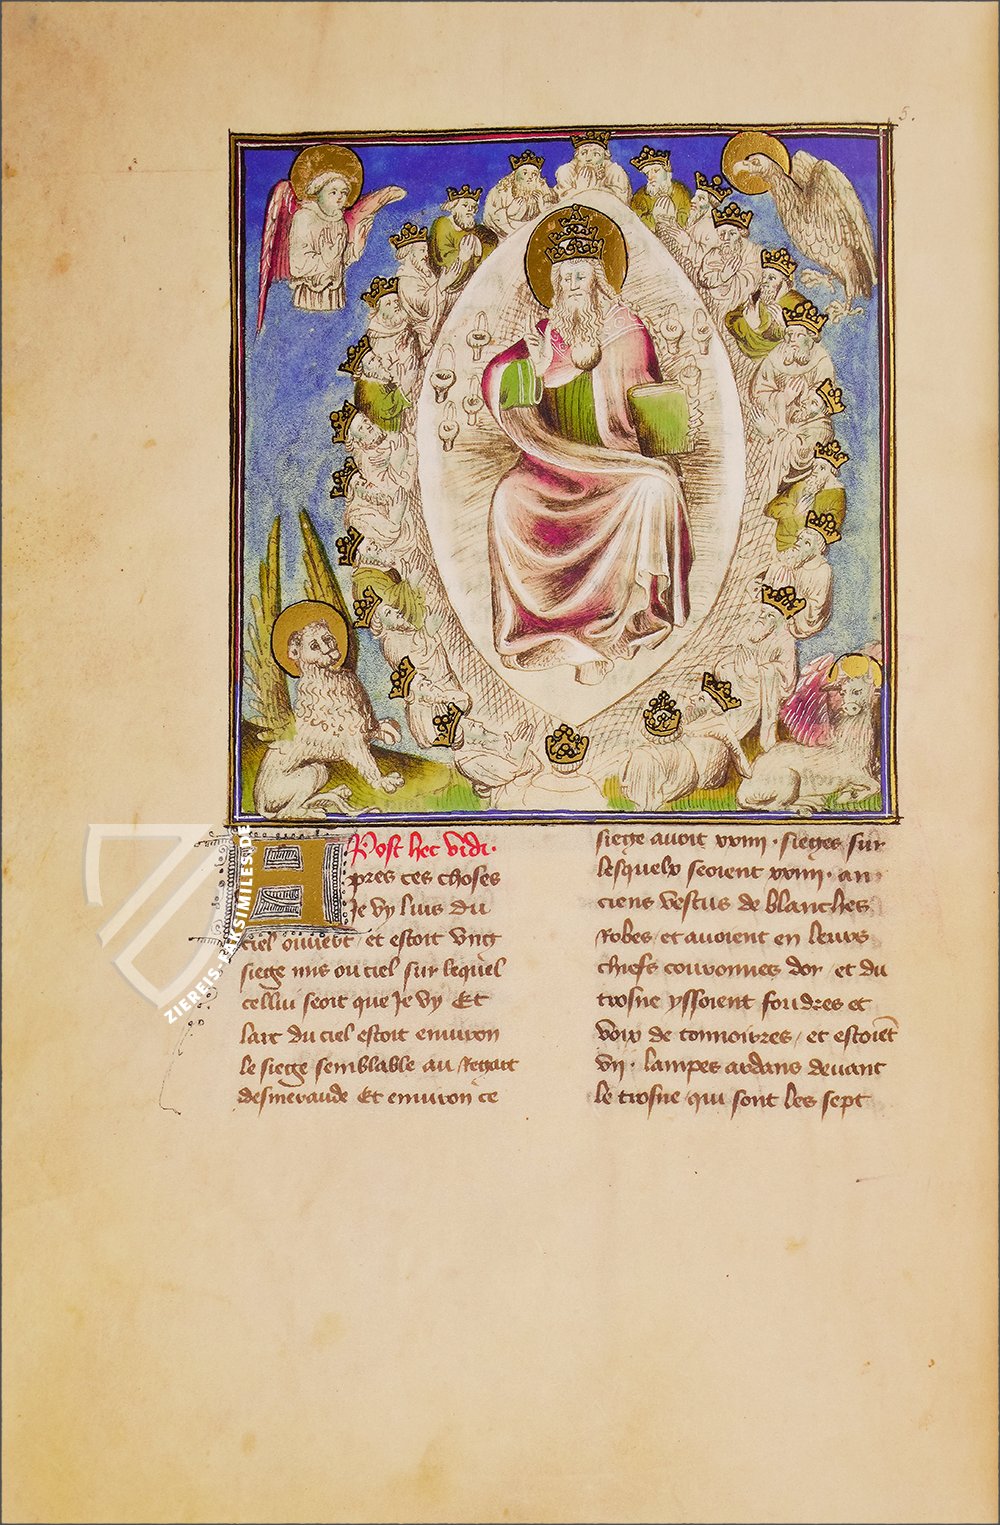 5.
Post hec vidi.
Apres ces choses
Je vy luis du
ciel ouvert / et estoit ung
siege mis ou ciel sur lequel
cellui seoit que Je vy Et
larc du ciel estoit environ
le siege semblable au Regart
desmeraude Et environ ce
siege avoit xxiiii · sieges sur
lesquelx seoient xxiiii · an
ciens vestus de blanches
Robes / et avoient en leurs
chiefs couronnes dor / et du
trosne yssoient fouldres et
voix de tonnoirres / et estoiet
vii · lampes ardans devant
le trosne / qui sont les sept
ZIEREIS-FAKSIMILES.DE